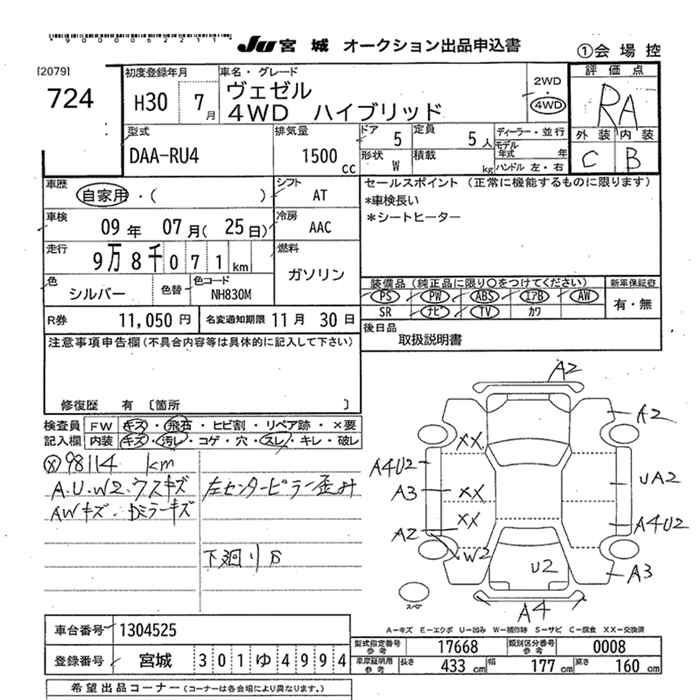 JU 宮城 オークション出品申込書 ①会場控
[2079]
724
初度登録年月 H30 7月
車名・グレード ヴェゼル
4WD ハイブリッド
2WD
4WD
評価点
RA
外装 内装
C B
型式 DAA-RU4
排気量 1500 cc
ドア 5 定員 5人
形状 W 積載 kg
ディーラー・並行
モデル年式 年
ハンドル 左・右
車歴 自家用・( )
シフト AT
車検 09年 07月(25日)
冷房 AAC
走行 9万8千071km
燃料 ガソリン
色 シルバー 色替 色コード NH830M
セールスポイント (正常に機能するものに限ります)
*車検長い
*シートヒーター
装備品(純正品に限り○をつけてください) 新車保証書
PS PW ABS エアB AW
SR ナビ TV カワ
有・無
R券 11,050円 名変通知期限 11月 30日
後日品 取扱説明書
注意事項申告欄(不具合内容等は具体的に記入して下さい)
修復歴 有 〔箇所 〕
検査員記入欄
FW キズ・飛石・ヒビ割・リペア跡・×要
内装 キズ・汚レ・コゲ・穴・スレ・キレ・破レ
98114 km
A.U.W2.ウスキズ 左センターピラー歪み
AWキズ・Dミラーキズ
下廻りS
A2
A2
XX
A4U2
A3
XX
UA2
XX
A2
A4U2
W2
U2
A3
A4
スペア
A-キズ E-エクボ U-凹み W-補修跡 S-サビ C-腐食 XX-交換済
車台番号 1304525
登録番号 宮城 301ゆ4994
型式指定番号参考 17668 類別区分番号参考 0008
車庫証明用参考 長さ 433cm 幅 177cm 高さ 160cm
希望出品コーナー(コーナーは各会場により異なります。)